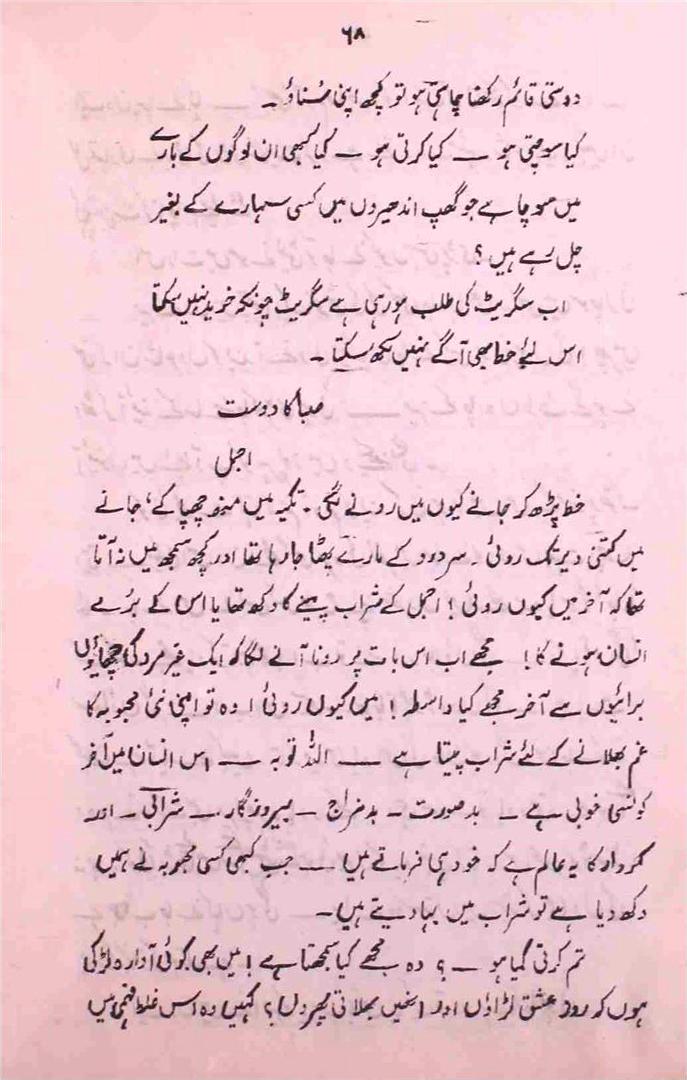 ۶۸
دوستی قائم رکھنا چاہتی ہو تو کچھ اپنی سُناؤ ۔
کیا سوچتی ہو — کیا کرتی ہو — کیا کبھی ان لوگوں کے بارے
میں سوچا ہے جو گھپ اندھیروں میں کسی سہارے کے بغیر
چل رہے ہیں ؟
اب سگریٹ کی طلب ہو رہی ہے سگریٹ چونکہ خرید نہیں سکتا
اس لئے خط بھی آگے نہیں لکھ سکتا ۔
صبا کا دوست
اجمل
خط پڑھ کر جانے کیوں میں رونے لگی ۔ تکیہ میں منھ چھپا کے ، جانے
میں کتنی دیر تک روئی ۔ سر درد کے مارے پھٹا جا رہا تھا اور کچھ سمجھ میں نہ آتا
تھا کہ آخر میں کیوں روئی ! اجمل کے شراب پینے کا دکھ تھا یا اس کے بُرے
انسان ہونے کا ! مجھے اب اس بات پر رونا آنے لگا کہ ایک غیر مرد کی اچھائیوں
برائیوں سے آخر مجھے کیا واسطہ ! میں کیوں روئی ! وہ تو اپنی نئی محبوبہ کا
غم بھلانے کے لئے شراب پیتا ہے — اللہ توبہ — اس انسان میں آخر
کونسی خوبی ہے ۔ بد صورت ۔ بد مزاج ۔ بیروزگار ۔ شرابی ۔ اور
کردار کا یہ عالم ہے کہ خود ہی فرماتے ہیں — جب کبھی کسی محبوبہ نے ہمیں
دکھ دیا ہے تو شراب میں بہا دیتے ہیں ۔
تم کرتی کیا ہو — ؟ وہ مجھے کیا سمجھتا ہے ! میں بھی کوئی آوارہ لڑکی
ہوں کہ روز عشق لڑاؤں اور انھیں بھلاتی پھروں ؟ کہیں وہ اس غلط فہمی میں